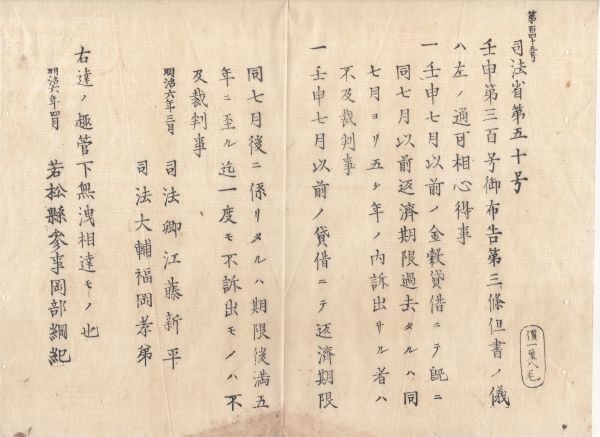 第百四十五号
司法省第五十号
壬申第三百号御布告第三條但書ノ儀
ハ左ノ通可相心得事
一壬申七月以前ノ金穀貸借ニテ既ニ
同七月以前返済期限過去タルハ同
七月ヨリ五ケ年ノ内訴出サル者ハ
不及裁判事
一壬申七月以前ノ貸借ニテ返済期限
同七月後ニ係リタルハ期限後満五
年ニ至ル迄一度モ不訴出モノハ不
及裁判事
明治六年三月
司法卿江藤新平
司法大輔福岡孝弟
右達ノ趣管下無洩相達モノ也
明治六年四月
若松縣参事岡部綱紀
價一厘八毛